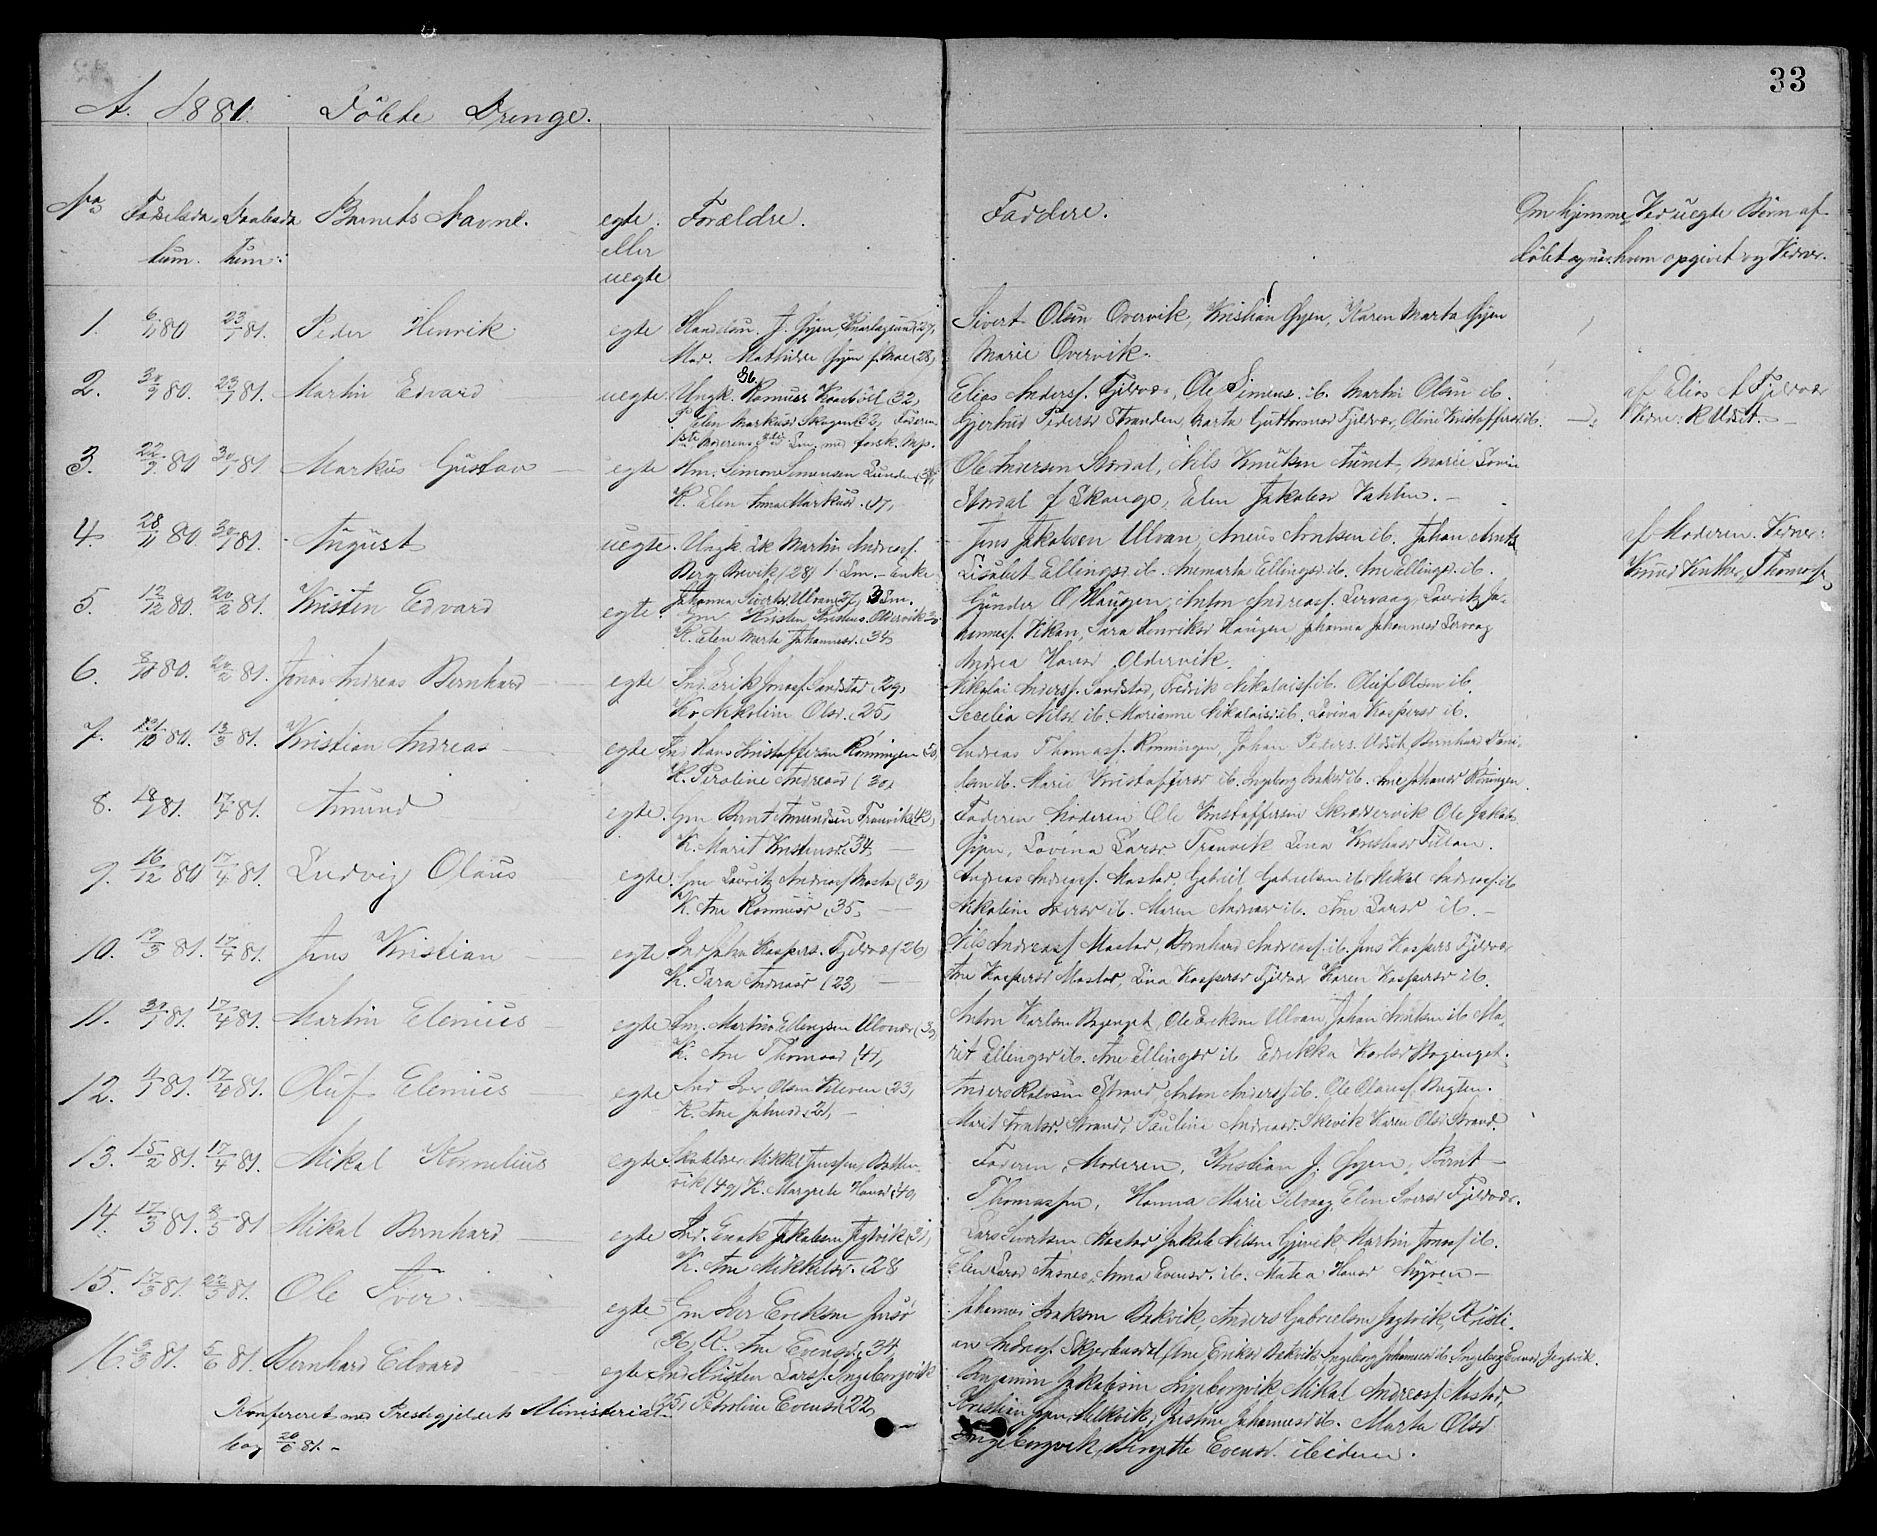 33
A. 1881. Döbte Drenge.
No Födselsda- Daabsda Barnets Navne. egte. Forældre. Faddere. Om hjemme- Ved uegte Börn af
tum. tum: eller döbt og naar. hvem opgivet og Vidner.
uegte
1. 6/11 80 23/1 81. Peder Henrik egte Handelsm. J. Gjen, (27,
Mad. Mathilde Gjen f. Moe (28,
Sivert Olsen Overvik, Kristian Gjen, Karen Marta Gjen
Marie Overvik.
2. 30/9 80. 23/1 81. Martin Edvard uegte. Ungk. Rasmus (32,
P. Elen Markusd Skagen 32, Faderen
Elias Andersf. Fjeldvær, Ole Simens. ib. Martin Olsen ib.
Gjertrud Pedersd Stranden, Marta Guthormsd Fjeldvær, Oline Kristoffersd ib.
af Elias A Fjeldvær
3. 22/9 80 30/1 81 Markus Gustav egte Hm. Simon Simensen Lunden
K. Elen Anna Markusd. (17,
Ole Andersen Stordal, Nils Knudsen Aunet, Marie Lovise
Stordal f Skauge, Elen Jakobsd Vahlen.
4. 28/11 80. 30/1 81. August uegte. Ungk. Martin Andreasf.
Berg Brevik (28) 1. Lm. - Enke
Johanna Sivertsd Ulvan 27, 3 Lm.
Jens Jakobsen Ulvan, Aneus Arntsen ib. Johan Arnts
Lisabet Ellingsd ib. Anemarta Ellingsd. ib. Ane Ellingsd. ib.
af Moderen. Vidner:
5. 12/12 80. 20/2 81. Kristen Edvard egte. Kristen Kristens. Oldervik
K. Elen Marta Johannesd. (34
Gunder O Haugen, Anton Andreasf. Lervaag, Lauritz Jo-
hannesf. Vikan, Sara Henriksd Haugen, Johanna Johannesd Lervaag
Andrea Hansd Oldervik.
6. 8/10 80. 20/2 81. Jonas Andreas Bernhard egte Ind. Erik Jonasf. Sandstad (29,
K. Nikoline Olsd. (25,
Nikolai Andersf. Sandstad, Fredrik Nikolaisf. ib. Oluf Olsen ib.
Secelia Nilsd. ib. Marianne Nikolaisd ib. Lovina Kaspersd ib.
7. 80. 13/3 81. Kristian Andreas egte Ind Hans Kristoffersen Rönningen
K. Peroline Andreasd (30,
Andreas Thomasf. Rönningen, Johan Peders. Udset, Bernhard Dani-
elsen ib. Marie Kristoffersd ib. Ingeborg Isaksd ib. Ane Johansd Röningen
8. 18/1 81. 17/4 81. Amund egte. Gm Bernt Amundsen Tranvik 43,
K. Marit Kristensd. 34,
Faderen Moderen Ole Kristoffersen Skreddervik Ole Jakob
Gjen, Lovina Larsd Tranvik Lina Kristiansd Tillan.
9. 16/12 80 17/4 81. Ludvig Olaus egte. Gm Lauritz Andreasf Mastad (39)
K. Ane Rasmusd (35,
Andreas Andreasf. Mastad, Gabriel Gabrielsen ib Mikal Andreasf. ib
Nikoline Iversd ib. Maren Andreasd ib. Ane Larsd ib.
10. 19/3 81. 17/4 81. Jens Kristian egte Ind John Kaspers. Fjeldvær (26)
K. Sara Andreasd (23,
Nils Andreasf Mastad, Bernhard Andreasf. ib. Jens Kaspers Fjeldvær
Ane Kaspersd Mastad, Lina Kaspersd Fjeldvær Karen Kaspersd ib.
11. 30/1 81. 17/4 81. Martin Elenius egte Lm. Martin Ellingsen Ulvan
K. Ane Thomasd (41,
Anton Karlsen Bogenget, Ole Eriksen Ulvan, Johan Arntsen ib Ma-
rit Ellingsd ib. Ane Ellingsd ib Erikka Karlsd Bogenget.
12. 4/1 81. 17/4 81. Oluf Elenius egte Ind Iver Olsen Kleven (23,
K. Ane Johnsd. (21,
Anders Strand, Anton Andersf. ib. Ole Olausf. Bugten.
Marit Arntsd. Strand, Pauline Andreasd. Skevik Karen Olsd Strand.
13. 15/2 81. 17/4 81. Mikal Kornelius egte Mikkel Jenssen, Botten-
vik (49) K. Margrete Hansd (40,
Faderen, Moderen, Kristian J. Gjen, Bernt
Thomassen, Hanna Marie Selvaag, Elen Iversd Fjeldvær.
14. 17/3 81. 8/5 81 Mikal Bernhard egte Ind. Enok Jakobsen Jegtvik (31,
K. Ane Mikkelsd. (28
Lars Sivertsen Mastad Jakob Nilsen Gjevik, Martin Jonasf ib.
Elen Larsd Aasnes, Anna Evensd. ib. Matea Hansd
15. 17/3 81. 22/5 81. Ole Iver. egte Gm Iver Eriksen Jusö
36, K. Ane Evensd. 34,
Johannes Isaksen Bekvik, Anders Gabrielsen Jegtvik, Kristi-
an Andreasf Skjerbusdal, Ane Eriksd Bekvik, Ingeborg Johannesd ib. Ingeborg Evensd, Jegtvik.
16. 3/3 81. 5/6 81. Bernhard Edvard egte Ind Kristen Larsf. Ingeborgvik
25, Petroline Evensd. 22,
Benjamin Jakobsen Ingeborgvik Mikal Andreasf. Mastad,
Kristian Gjen, Melkvik, Justine Johannesd ib. Marta Olsd
Ingeborgvik, Birgitte Evensd. ibidem.
Konfereret med Prestegjeldets Ministerial-
bog 20/6 81.